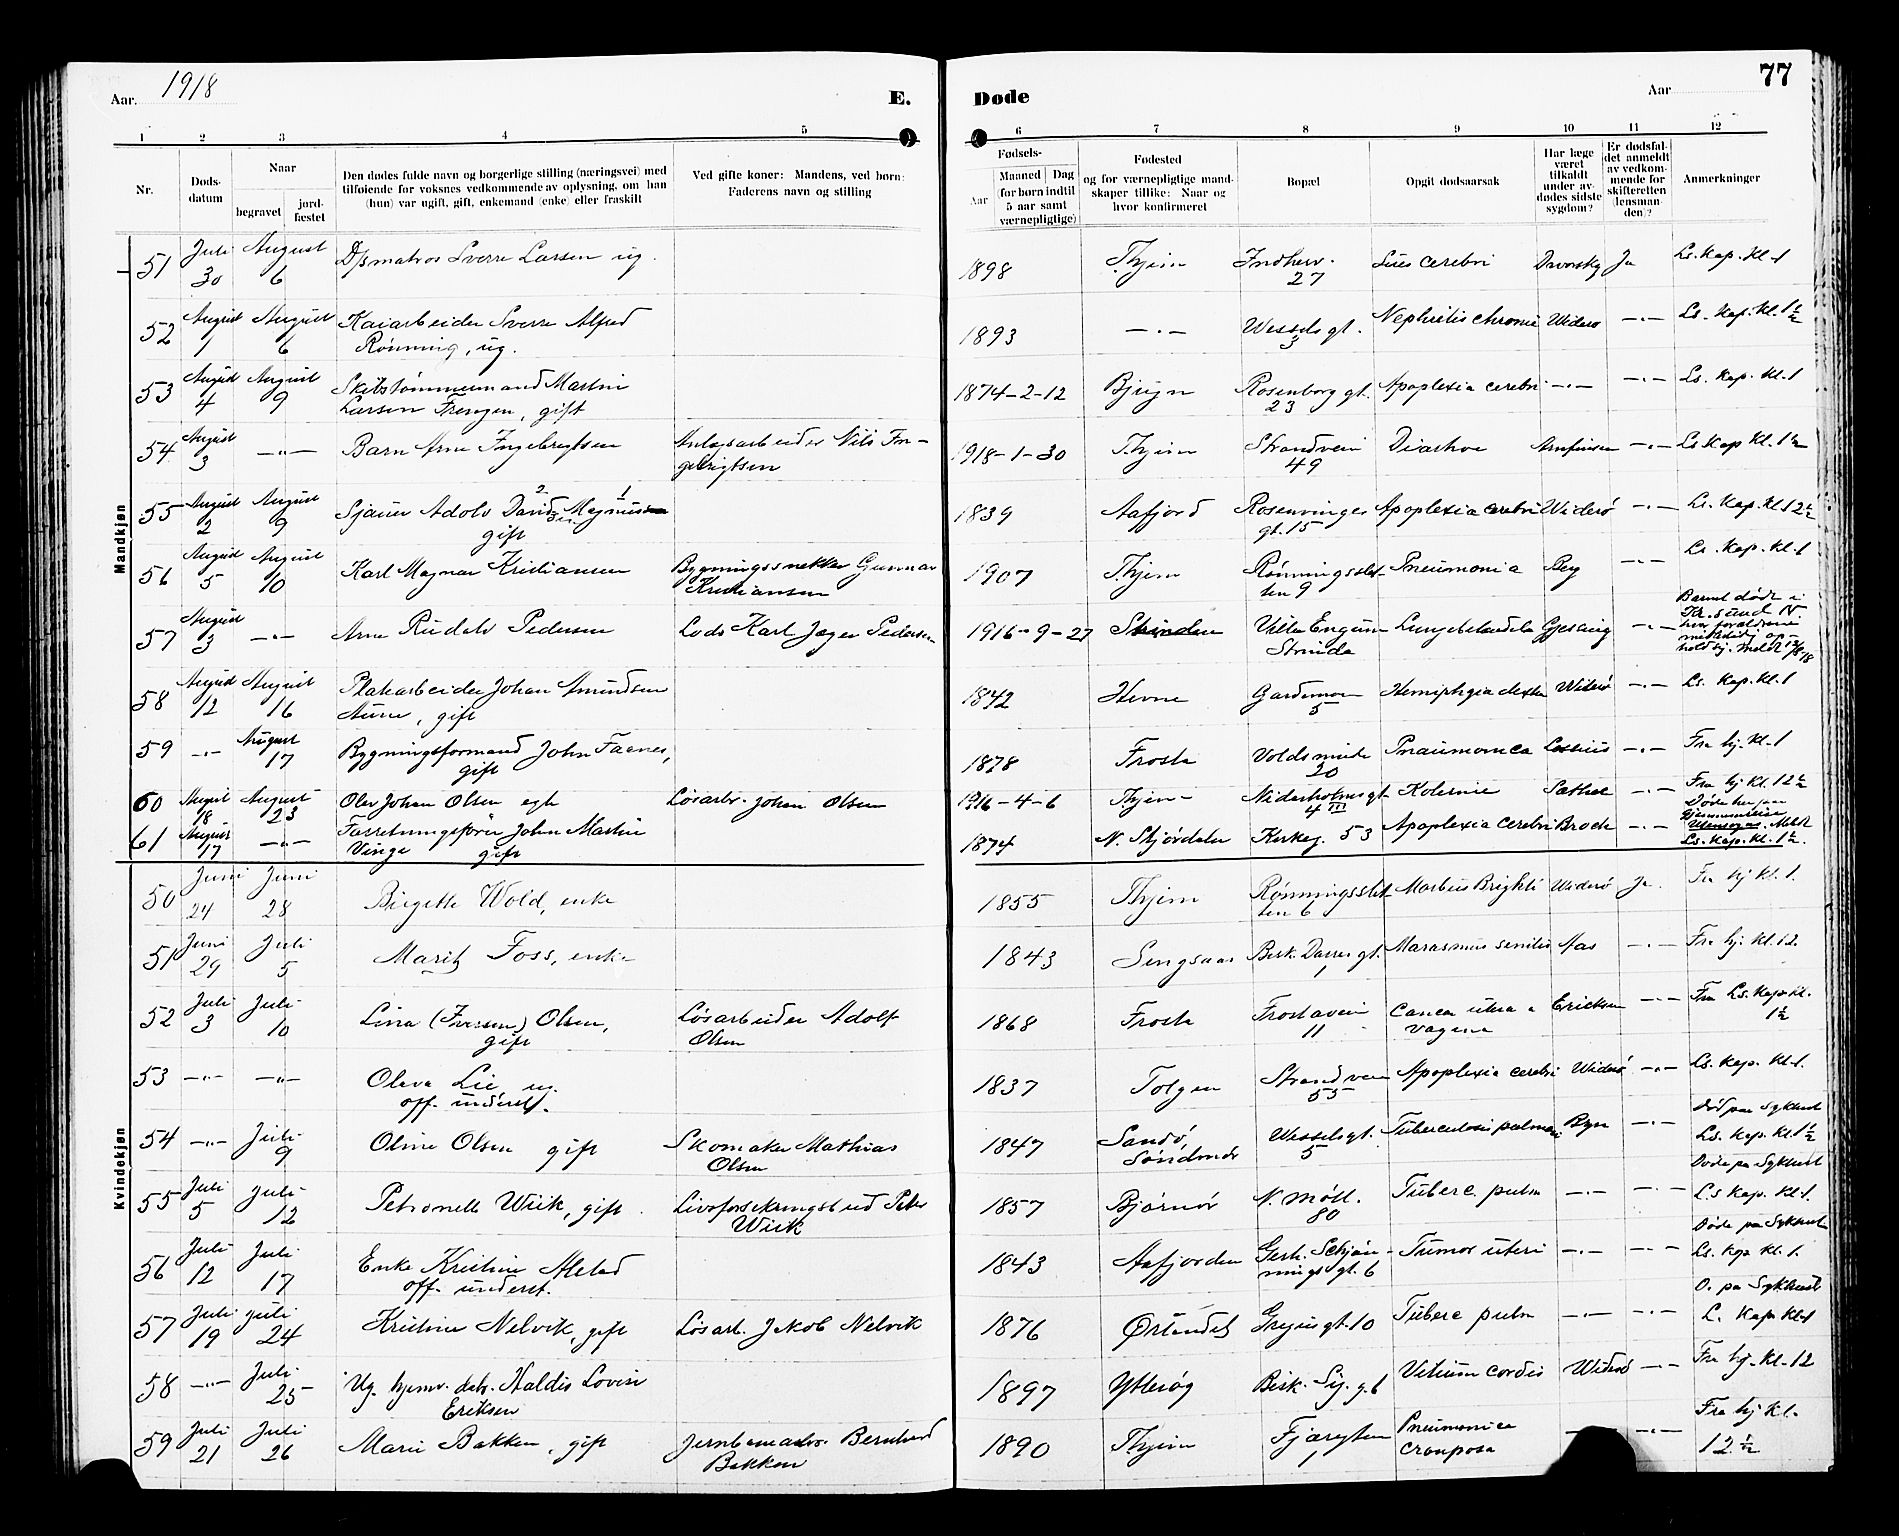 Aar. 1918
E.
Døde
Aar
77
1 2 3 4 5 6 7 8 9 10 11 12
Nr.
Døds-
datum
Naar
begravet
jord-
fæstet
Den dødes fulde navn og borgerlige stilling (næringsvei) med
tilføiende for voksnes vedkommende av oplysning, om han
(hun) var ugift, gift, enkemand (enke) eller fraskilt
Ved gifte koner: Mandens, ved børn:
Faderens navn og stilling
Fødsels-
Aar
Maaned Dag
(for børn indtil
5 aar samt
værnepligtige)
Fødested
og for værnepligtige mand-
skaper tillike: Naar og
hvor konfirmeret
Bopæl
Opgit dødsaarsak
Har læge
været
tilkaldt
under av-
dødes sidste
sygdom?
Er dødsfal-
det anmeldt
av vedkom-
mende for
skifteretten
(lensman-
den)?
Anmerkninger
Mandkjøn
51 Juli 30 August 6 D/s matros Sverre Larsen ug. 1898 Thjem Indherv. 27 Lues cerebri Ja Ls. Kap. Kl. 1
52 August 1 August 6 Kaiarbeider Sverre Alfred
Rønning, ug. 1893 —"— Wessels gt. 3 Nephritis chronic Widerø —"— Ls. Kap. Kl. 1 1/2
53 August 4 August 9 Skibstømmermand Martin
Larsen Frengen, gift 1874-2-12 Bjugn Rosenborg gt. 23 Apoplexia cerebri —"— —"— Ls. Kap. Kl. 1
54 August 3 —"— Barn Arne Ingebrigtsen Anlægsarbeider Nils In-
gebrigtsen 1918-1-30 Thjem Strandvein 49 Diarrhoe Arnfinsen —"— Ls Kap Kl. 1 1/2
55 August 2 August 9 Sjauer Adolv David Magnussen
gift 1839 Aafjord Rosenvinges
gt. 15 Apoplexia cerebri Widerø —"— Ls. Kap. Kl 12 1/2
56 August 5 August 10 Karl Magnar Kristiansen Bygningssnekker Gunnar
Kristiansen 1907 Thjem Rønningsslet-
ten 9 Pneumonia —"— Ls. Kap. Kl. 1
57 August 3 —"— Arne Rudolv Pedersen Lods Karl Jæger Pedersen 1916-9-27 Strinden Villa Engum
Strinda Lungebetændelse Gjessing —"— Barnet døde i
Kr.sund N
hvor forældrene
midlertidig op-
holdt sig. Meldt 12/8-18
58 August 12 August 16 Platearbeider Johan Amundsen
Aune, gift 1842 Hevne Gardemoen 5 Hemiplegia dextra Widerø —"— Ls. Kap. Kl. 1
59 —"— August 17 Bygningsformand John Faanes,
gift 1878 Frosta Voldsminde 20 Pneumonica —"— Fra hj. Kl. 1
60 August 18 August 23 Olav Johan Olsen egte Løsarb. Johan Olsen 1916-4-6 Thjem Nidarholms gt.
4 III Kolerine Sæther —"— Fra hj Kl. 12 1/2
61 August 17 —"— Forretningsfører John Martin
Vinge gift 1874 N. Stjørdalen Kirkeg. 53 Apoplexia cerebri Broch —"— Ls. Kap. Kl. 1 1/2.
Kvindekjøn
50 Juni 24 Juni 28 Birgitte Wold, enke 1855 Thjem Rønningsslet-
ten 6 Morbus Brighti Widerø Ja. Fra hj Kl. 1.
51 Juni 29 Juli 5 Marit Foss, enke 1843 Singsaas Bisk. Darres gt. 1 Marasmus senilis Aas —"— Fra hj. Kl. 12.
52 Juli 3 Juli 10 Lina (Iversen) Olsen,
gift Løsarbeider Adolf
Olsen 1868 Frosta Frostavein
11 Cancer
vagina Ericksen —"— Fra Ls. Kap. Kl.
1 1/2
53 —"— —"— Oleva Lie, ug.
off. underst. 1837 Tolgen Strandvein
55 Apoplexia cerebri Widerø —"— Ls. Kap. Kl. 1.
54 —"— Juli 9 Oline Olsen gift Skomaker Mathias
Olsen 1847 Sandø,
Søndmør Wessels gt.
5 Tuberculosis pulmon Ryn —"— Død paa Sykehust
Ls. Kap. Kl. 1 1/2
55 Juli 5 Juli 12 Petronelle Wiik, gift Livsforsikringsbud Peter
Wiik 1857 Bjørnør N. Møll.
80 Tuberc. pulm —"— —"— Døde pa Sykehust
Ls Kap. Kl. 1.
56 Juli 12 Juli 17 Enke Kristine Alstad
off. underst. 1843 Aafjorden Gerh. Schjøn-
nings gt. 6 Tumor uteri —"— —"— Døde pa Sykehust
Ls. Kap Kl. 1.
57 Juli 19 Juli 24 Kristine Nelvik, gift Løsarb. Jakob Nelvik 1876 Ørlandet gt. 10 Tuberc pulm —"— —"— D. pa Sykehust
L. Kap. Kl. 1
58 —"— Juli 25 Ug. hjemv. dtr. Haldis Lovise
Eriksen 1897 Ytterøg Bisk. Sig. g. 6 Vitium cordis Widerø —"— Fra hj. Kl. 12
59 Juli 21 Juli 26 Marie Bakken, gift Bernhard
Bakken 1890 Thjem Pneumonica
crouposa —"— —"— Fra hj Kl.
12 1/2